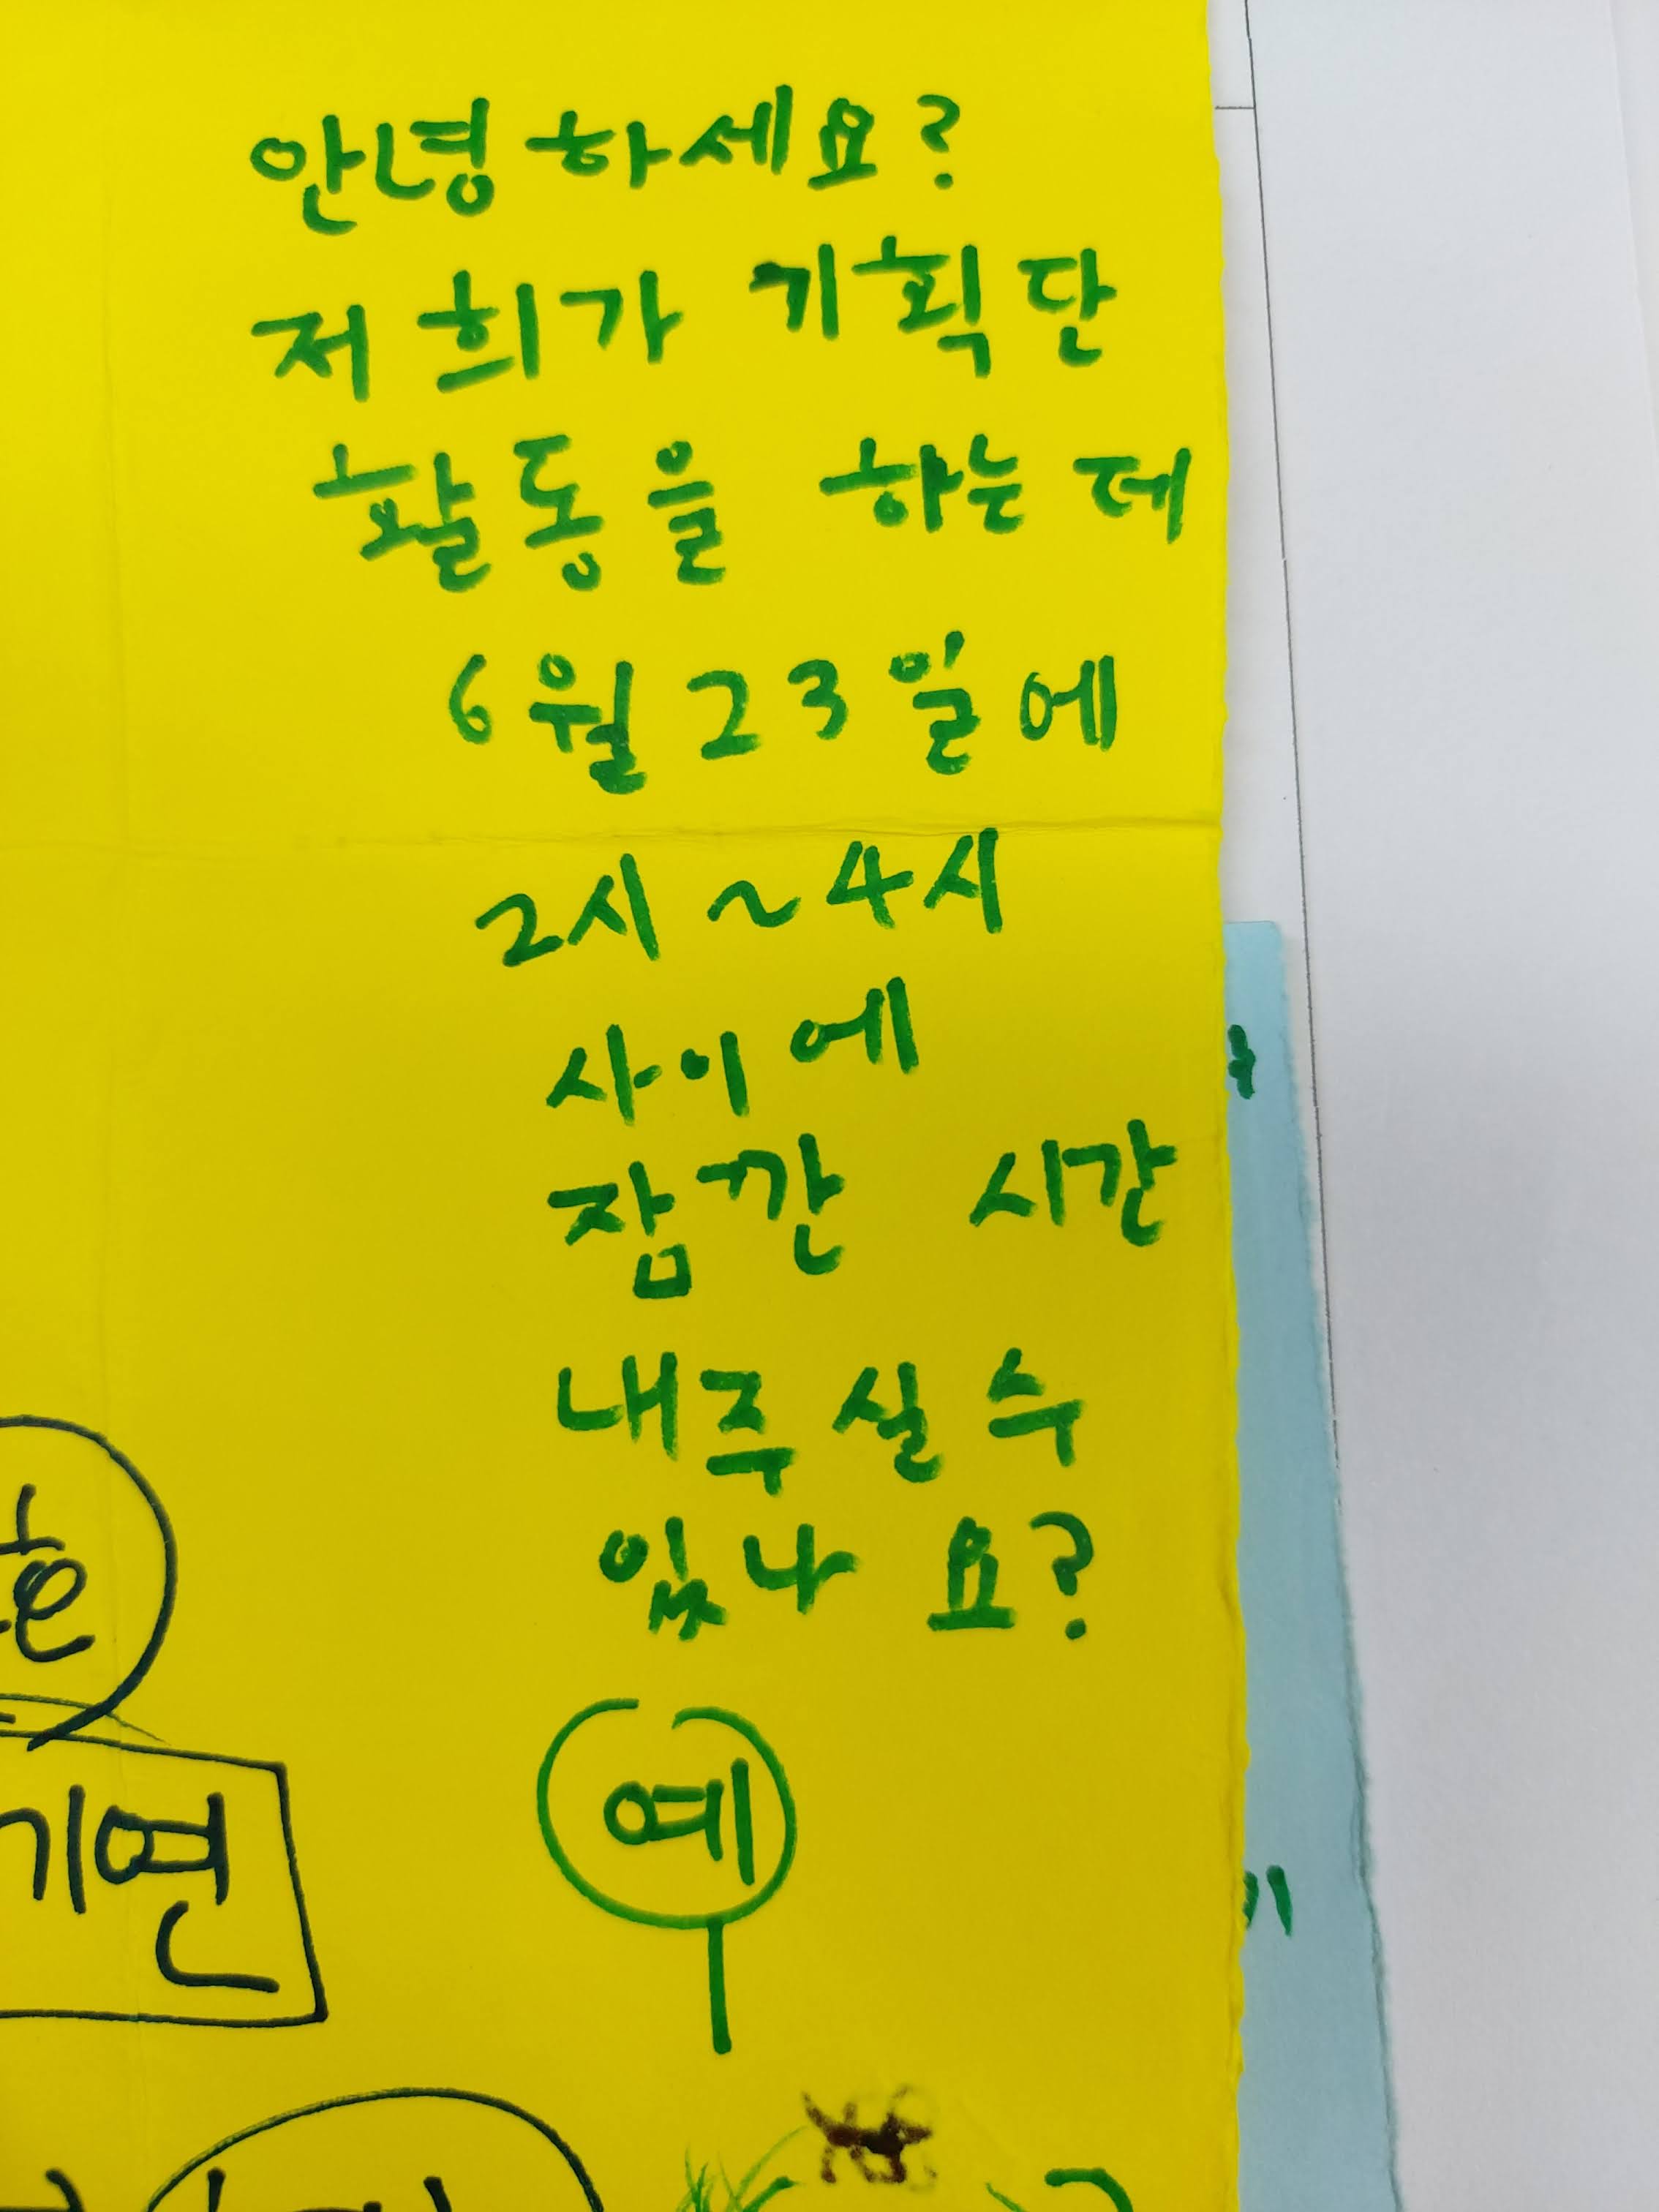 안녕하세요?
저희가 기획단
활동을 하는데
6월 23일에
2시~4시
사이에
잠깐 시간
내주실 수
있나요?
예
기연